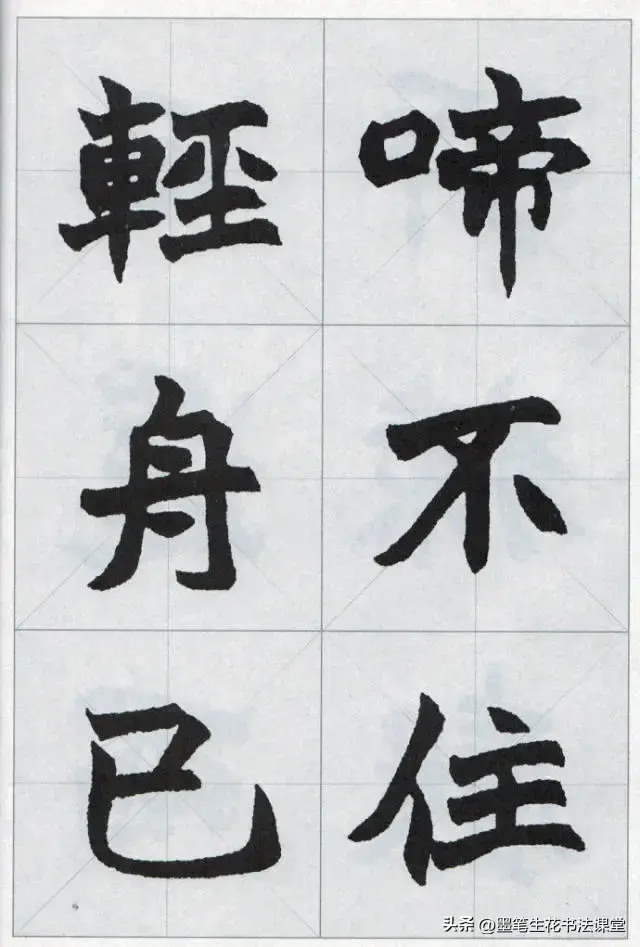 啼不住
輕舟已
头条 @墨笔生花书法课堂